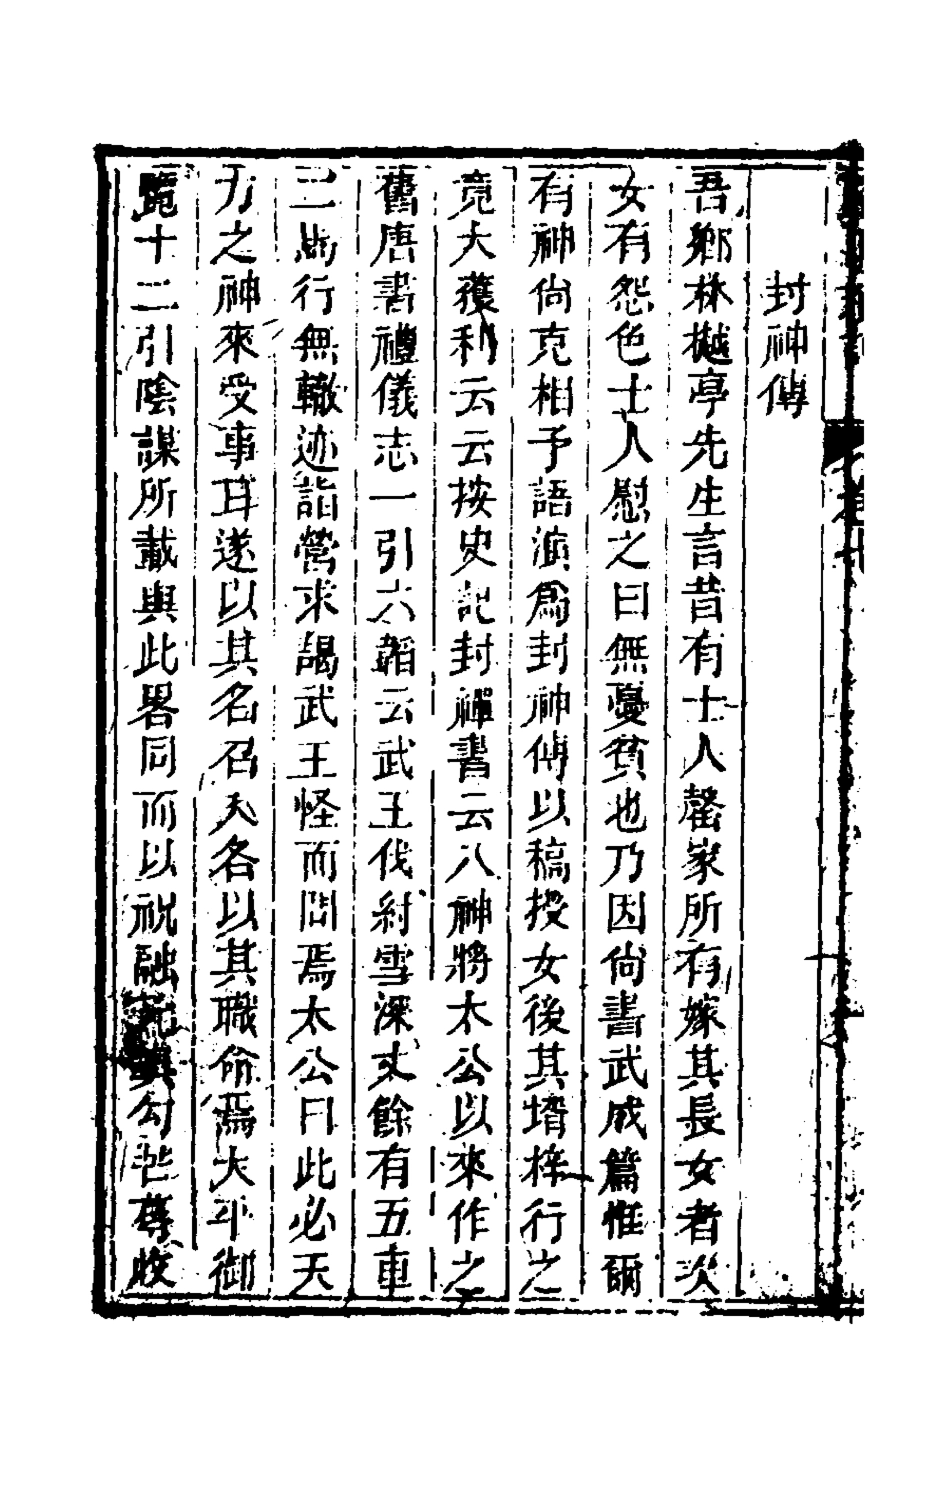 封神傳
吾鄉林樾亭先生言昔有士人罄家所有嫁其長女者次
女有怨色士人慰之曰無憂貧也乃因尙書武成篇惟爾
有神尙克相予語演爲封神傳以稿授女後其壻梓行之
竟大獲利云云按史記封禪書云八神將太公以來作之
舊唐書禮儀志一引六韜云武王伐紂雪深丈餘有五車
二馬行無轍迹詣營求謁武王怪而問焉太公曰此必天
方之神來受事耳遂以其名召入各以其職命焉太平御
覽十二引陰謀所載與此畧同而以祝融元冥勾芒蓐收